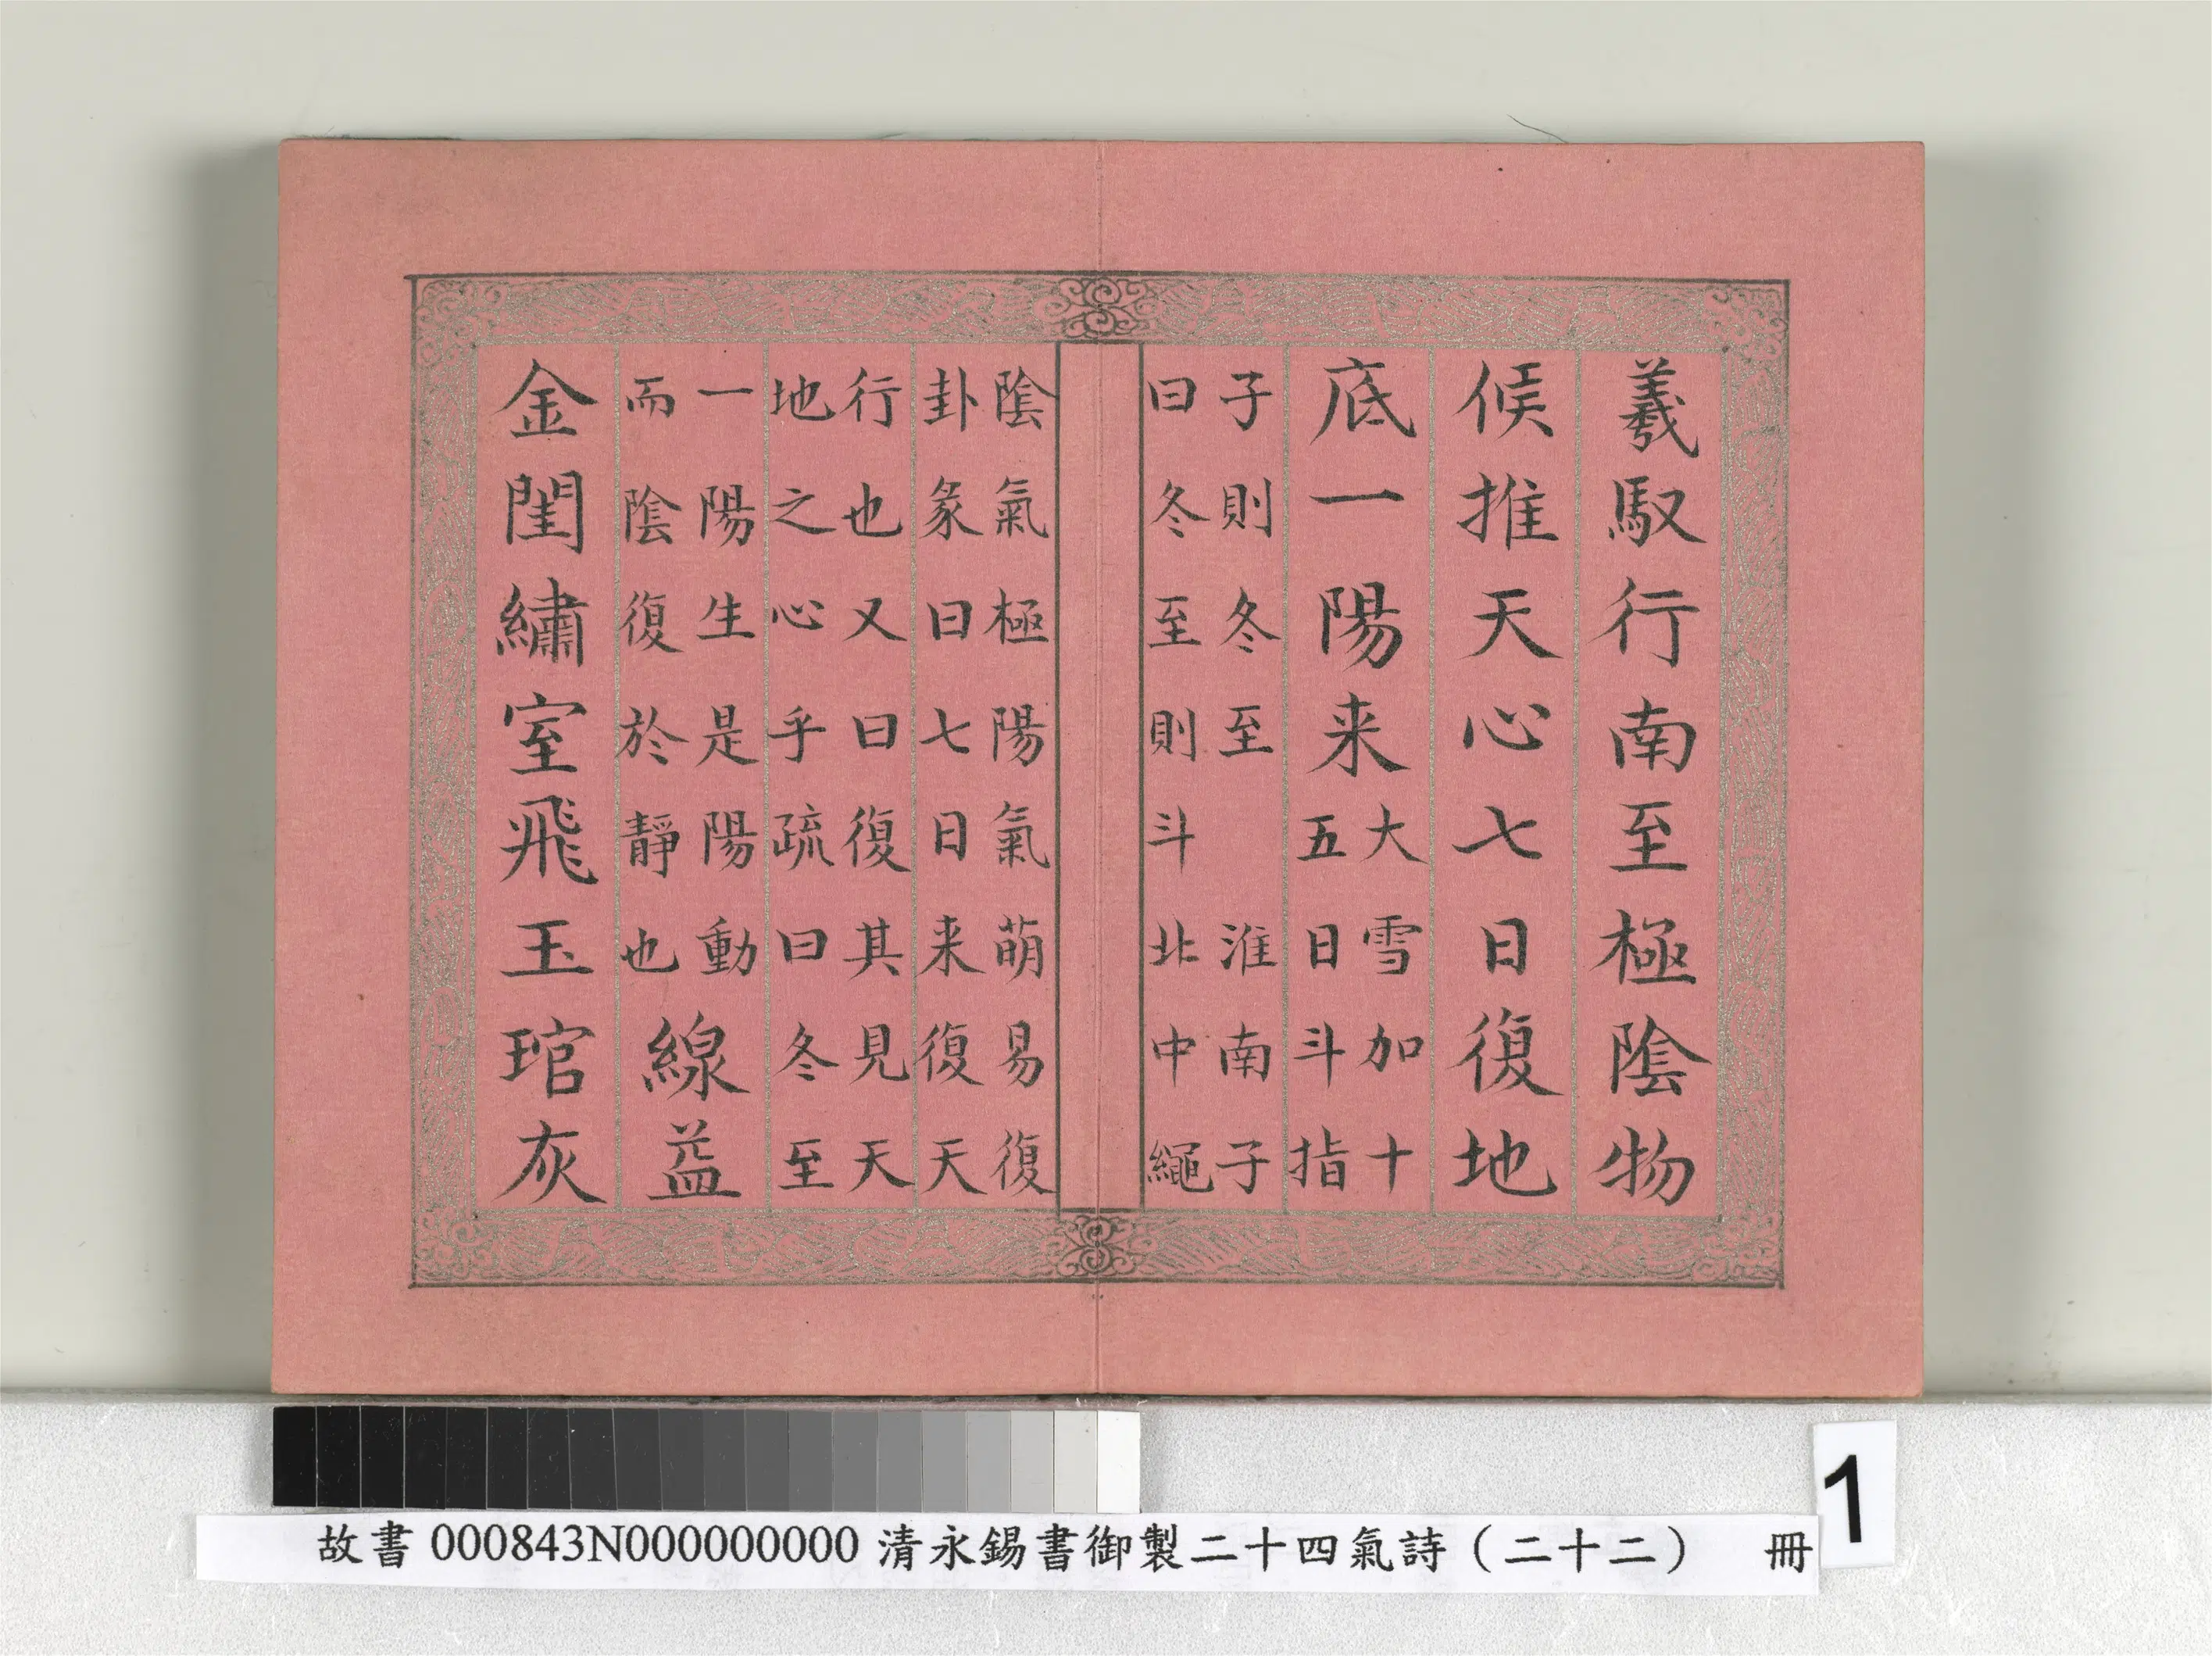 羲馭行南至極陰物
候推天心七日復地
底一陽来
大雪加十
五日斗指
子則冬至 淮南子
曰冬至則斗北中繩
陰氣極陽氣萌易復
卦彖曰七日来復天
行也又曰復其見天
地之心乎疏曰冬至
一陽生是陽動
而陰復於靜也
線益
金閨繡室飛玉琯灰
1
故書 000843N000000000 清永錫書御製二十四氣詩（二十二） 冊